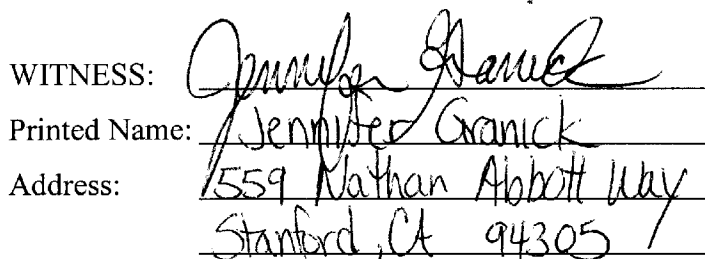 WITNESS: Jennifer Granick
Printed Name: Jennifer Granick
Address: 559 Nathan Abbott Way
Stanford, CA 94305